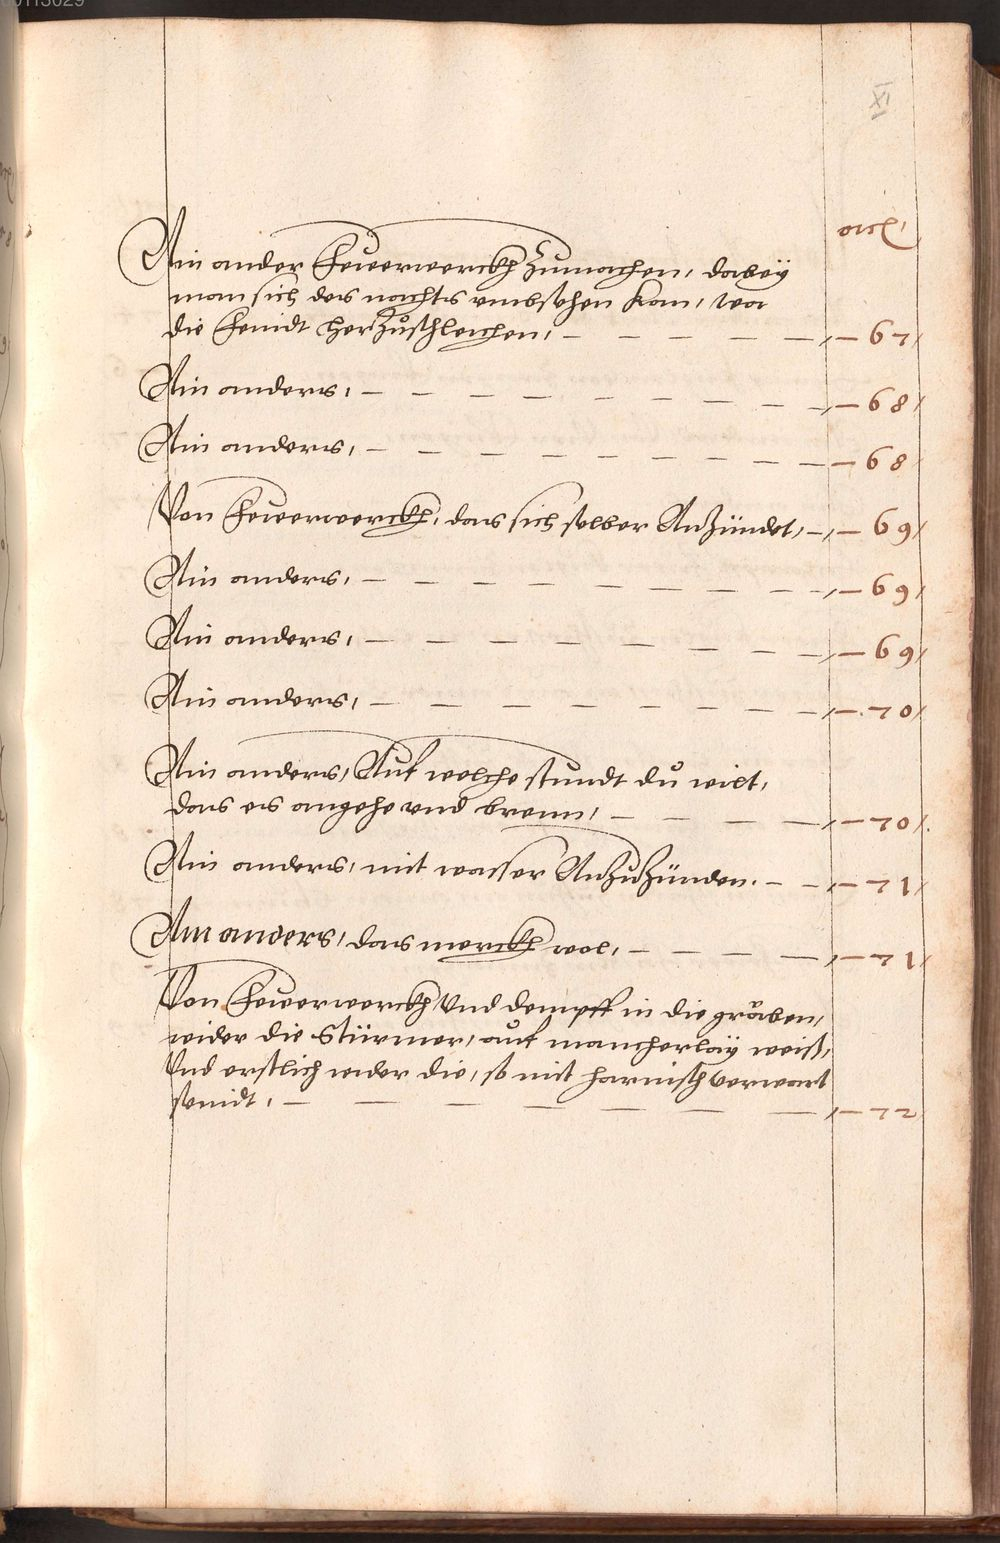 00113029
XI
Ain ander Feuerwerckh Zumachen, dabeÿ
man sich des nachts vmbsehen kan, wa
die Feindt herZůschleichen, — — — — — — 67
Ain anders, — — — — — — — — — 68
Ain anders, — — — — — — — — — 68
Von Feuerwerckh, das sich selber AnZündet, — — 69
Ain anders, — — — — — — — — — 69
Ain anders, — — — — — — — — — 69
Ain anders, — — — — — — — — — 70
Ain anders, Auf welche stundt dů wilt,
das es angehe vnd brenn, — — — — — 70
Ain anders, mit wasser AnZuZünden. — — — 71
Ain anders, das merckh wol, — — — — — 71
Von Feuerwerckh Vnd dempff in die gräben,
wider die Stürmer, auf mancherlaÿ weiß,
Vnd erstlich wider die, so mit harnisch verwart
seindt, — — — — — — — — 72